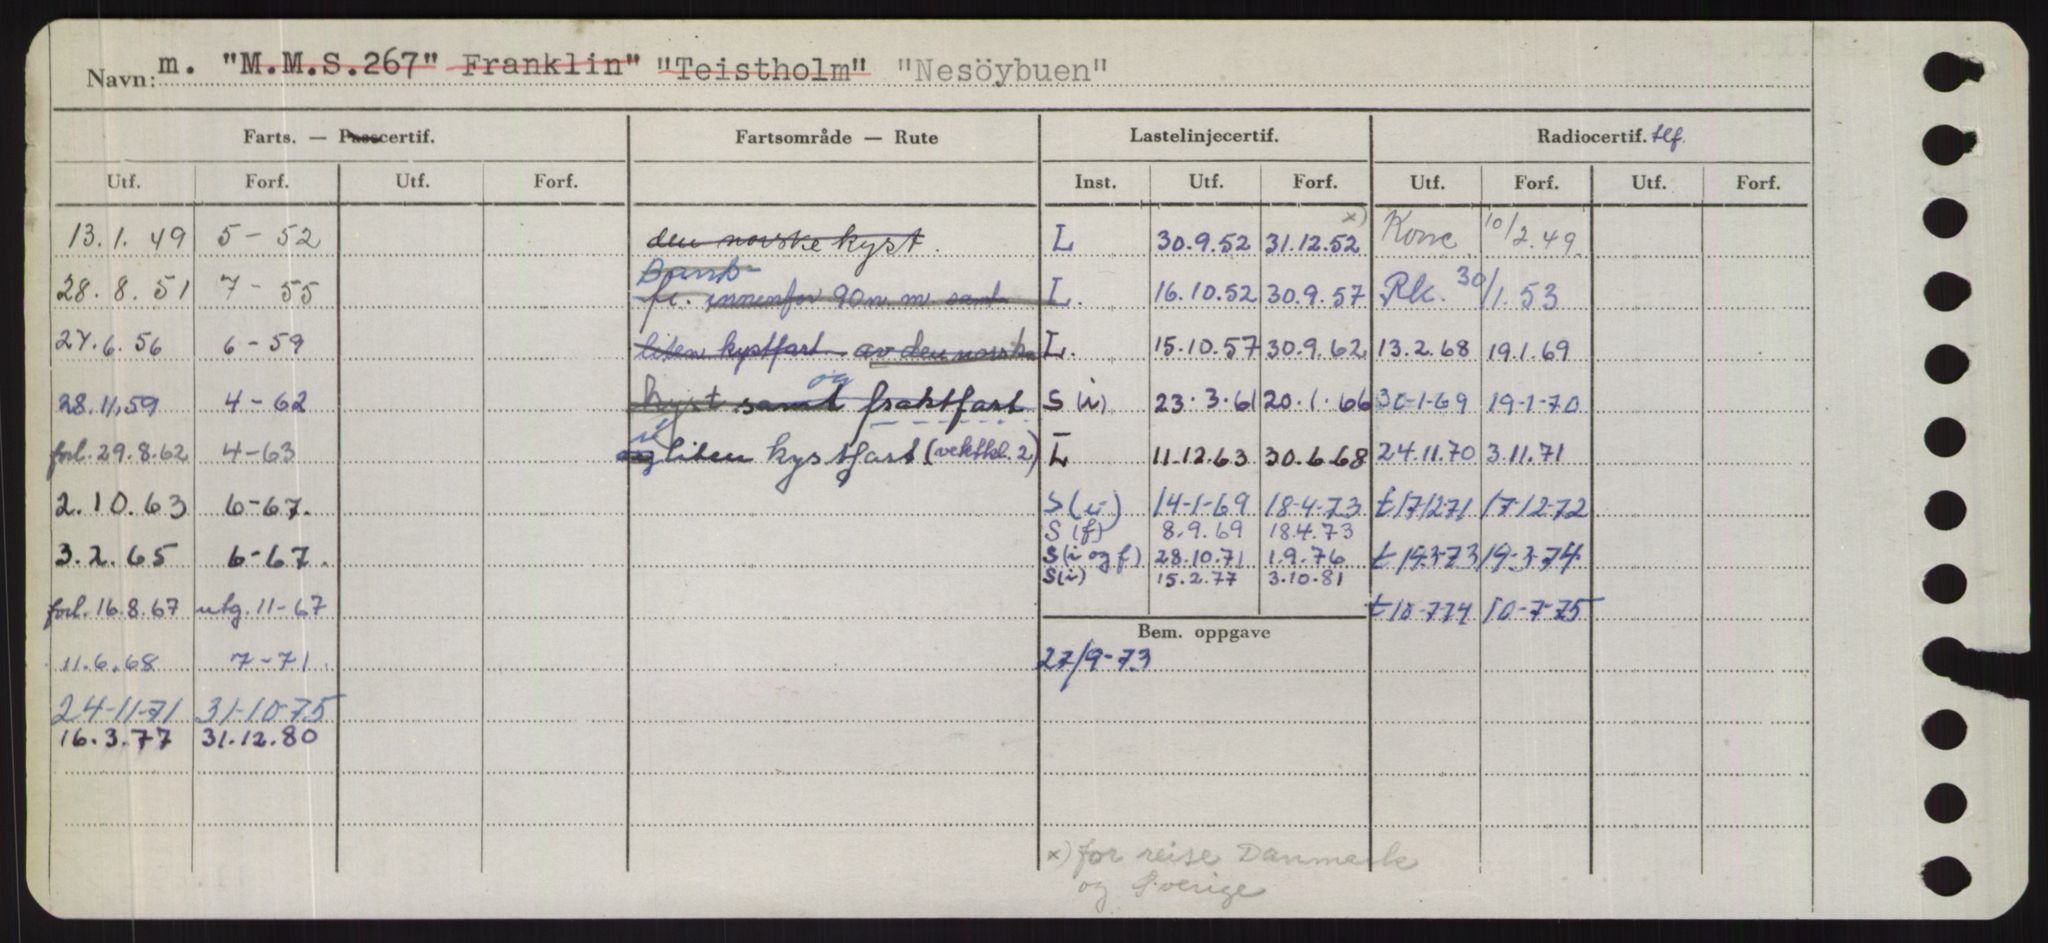 Navn: m. "M.M.S.267" Franklin" "Teistholm" "Nesöybuen"
Farts. — Passcertif. Fartsområde — Rute Lastelinjecertif. Radiocertif. tlf.
Utf. Forf. Utf. Forf. Inst. Utf. Forf. Utf. Forf. Utf. Forf.
13.1.49 5-52 den norske kyst. L 30.9.52 31.12.52 x) Konc. 10/2.49.
28.8.51 7-55 fr. innenfor 90 n.m. samt L. 16.10.52 30.9.57 Rk. 30/1.53
27.6.56 6-59 liten kystfart av den norske L. 15.10.57 30.9.62 13.2.68 19.1.69
og
28.11.59 4-62 kyst samt fraktfart S(i) 23.3.61 20.1.66 30-1-69 19-1-70
forl. 29.8.62 4-63 i liten kystfart (vektkl. 2) L 11.12.63 30.6.68 24.11.70 3.11.71
2.10.63 6-67. S(i) 14-1-69 18-4-73 t 17/12 71 17-12-72
S(f) 8.9.69 18.4.73
3.2.65 6-67. S(i og f) 28.10.71 1.9.76 t 19.3-73 19-3-74
S(i) 15.2.77 3.10.81
forl. 16.8.67 utg. 11-67 t 10-7-74 10-7-75
Bem. oppgave
11.6.68 7-71. 27/9-73
24-11-71 31-10-75
16.3.77 31.12.80
x) for reise Danmark
og Sverige